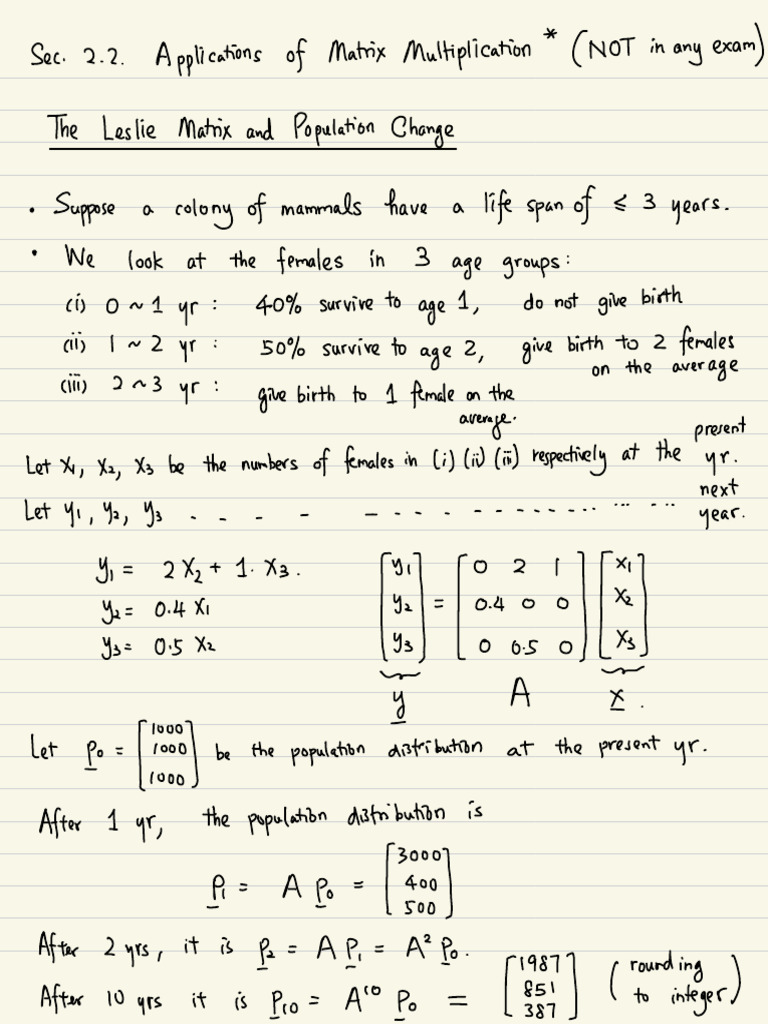 Sec. 2.2. Applications of Matrix Multiplication * (NOT in any exam)
The Leslie Matrix and Population Change
• Suppose a colony of mammals have a life span of ≤ 3 years.
• We look at the females in 3 age groups:
(i) 0 ~ 1 yr : 40% survive to age 1, do not give birth
(ii) 1 ~ 2 yr : 50% survive to age 2, give birth to 2 females on the average
(iii) 2 ~ 3 yr : give birth to 1 female on the average.
Let x₁, x₂, x₃ be the numbers of females in (i) (ii) (iii) respectively at the present yr.
Let y₁, y₂, y₃ . - . - - . . . - - - - - - ... ... next year.
y₁ = 2x₂ + 1. x₃.
y₂ = 0.4 x₁
y₃ = 0.5 x₂
[y₁ y₂ y₃] = [0 2 1; 0.4 0 0; 0 0.5 0] [x₁ x₂ x₃]
y A x.
Let p₀ = [1000 1000 1000] be the population distribution at the present yr.
After 1 yr, the population distribution is
p₁ = A p₀ = [3000 400 500]
After 2 yrs, it is p₂ = A p₁ = A² p₀.
After 10 yrs it is p₁₀ = A¹⁰ p₀ = [1987 851 387] (rounding to integer)